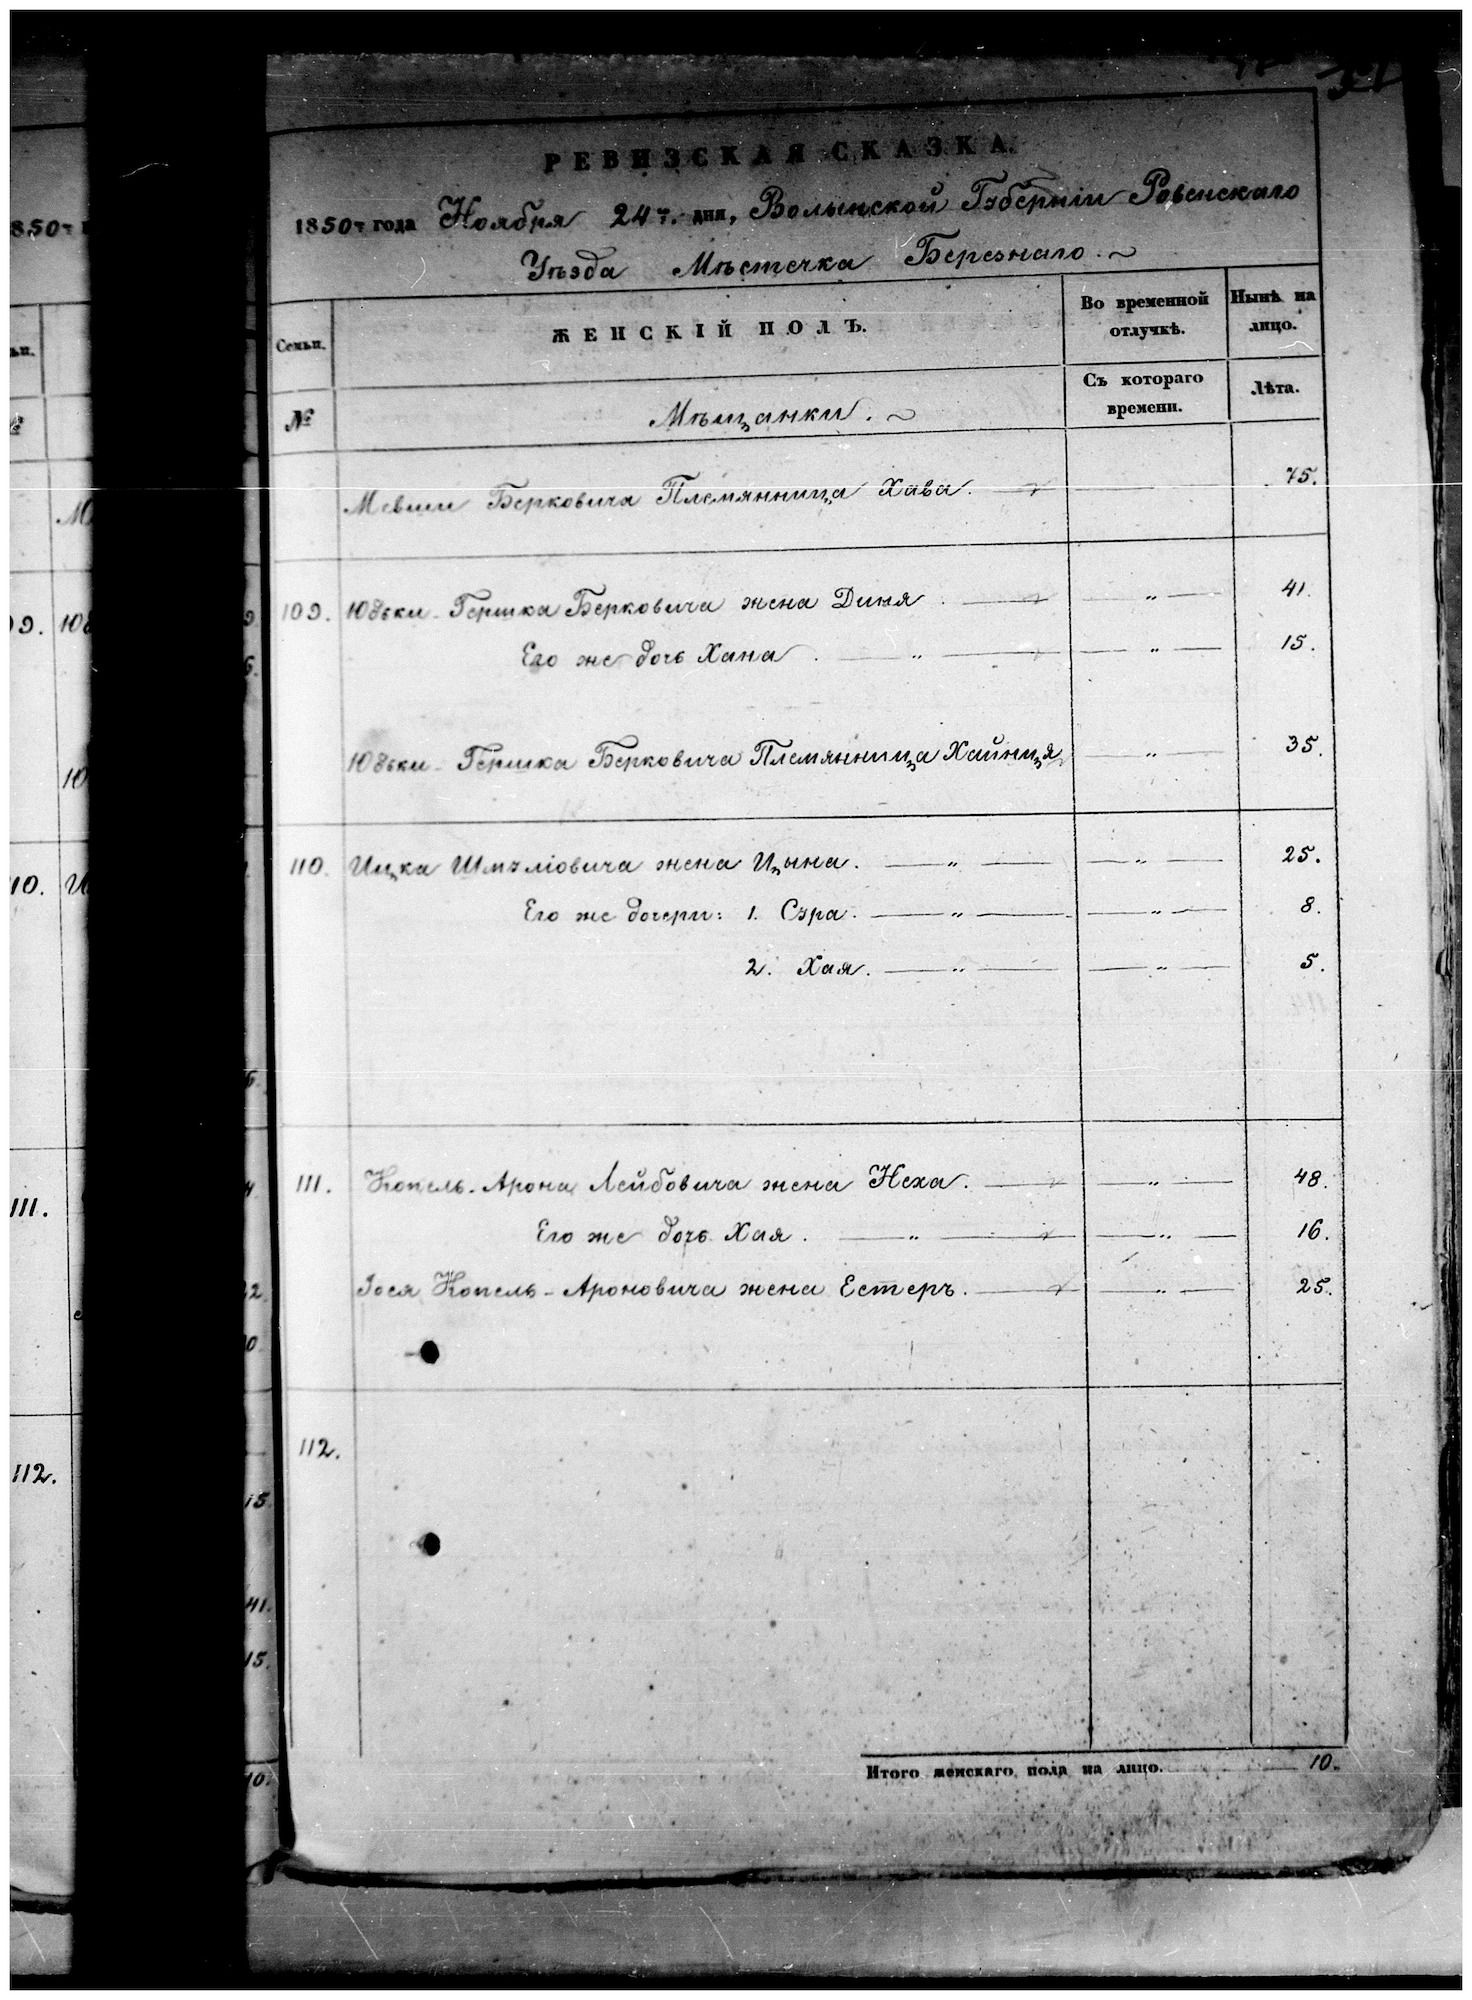 РЕВИЗСКАЯ СКАЗКА.
1850 года Ноября 24 дня, Волынской Губерніи Ровенскаго
Уѣзда Мѣстечка Березнаго.
Семьи.
ЖЕНСКІЙ ПОЛЪ.
Во временной отлучкѣ.
Нынѣ на лицо.
№
Мѣщанки.
Съ котораго времени.
Лѣта.
Мевши Берковича Племянница Хава. 75.
109. Юдьки-Гершка Берковича жена Диня. " 41.
Его же дочь Хана. " " 15.
Юдьки-Гершка Берковича Племянница Хайнця " 35.
110. Ицка Шмуліовича жена Цына. " " 25.
Его же дочери: 1. Сура. " " 8.
2. Хая. " " 5.
111. Копель-Арона Лейбовича жена Неха. " 48.
Его же дочь Хая. " " 16.
Іося Копель-Ароновича жена Естеръ. " 25.
112.
Итого женскаго пола на лицо. 10.
1850
№
109.
110.
111.
112.